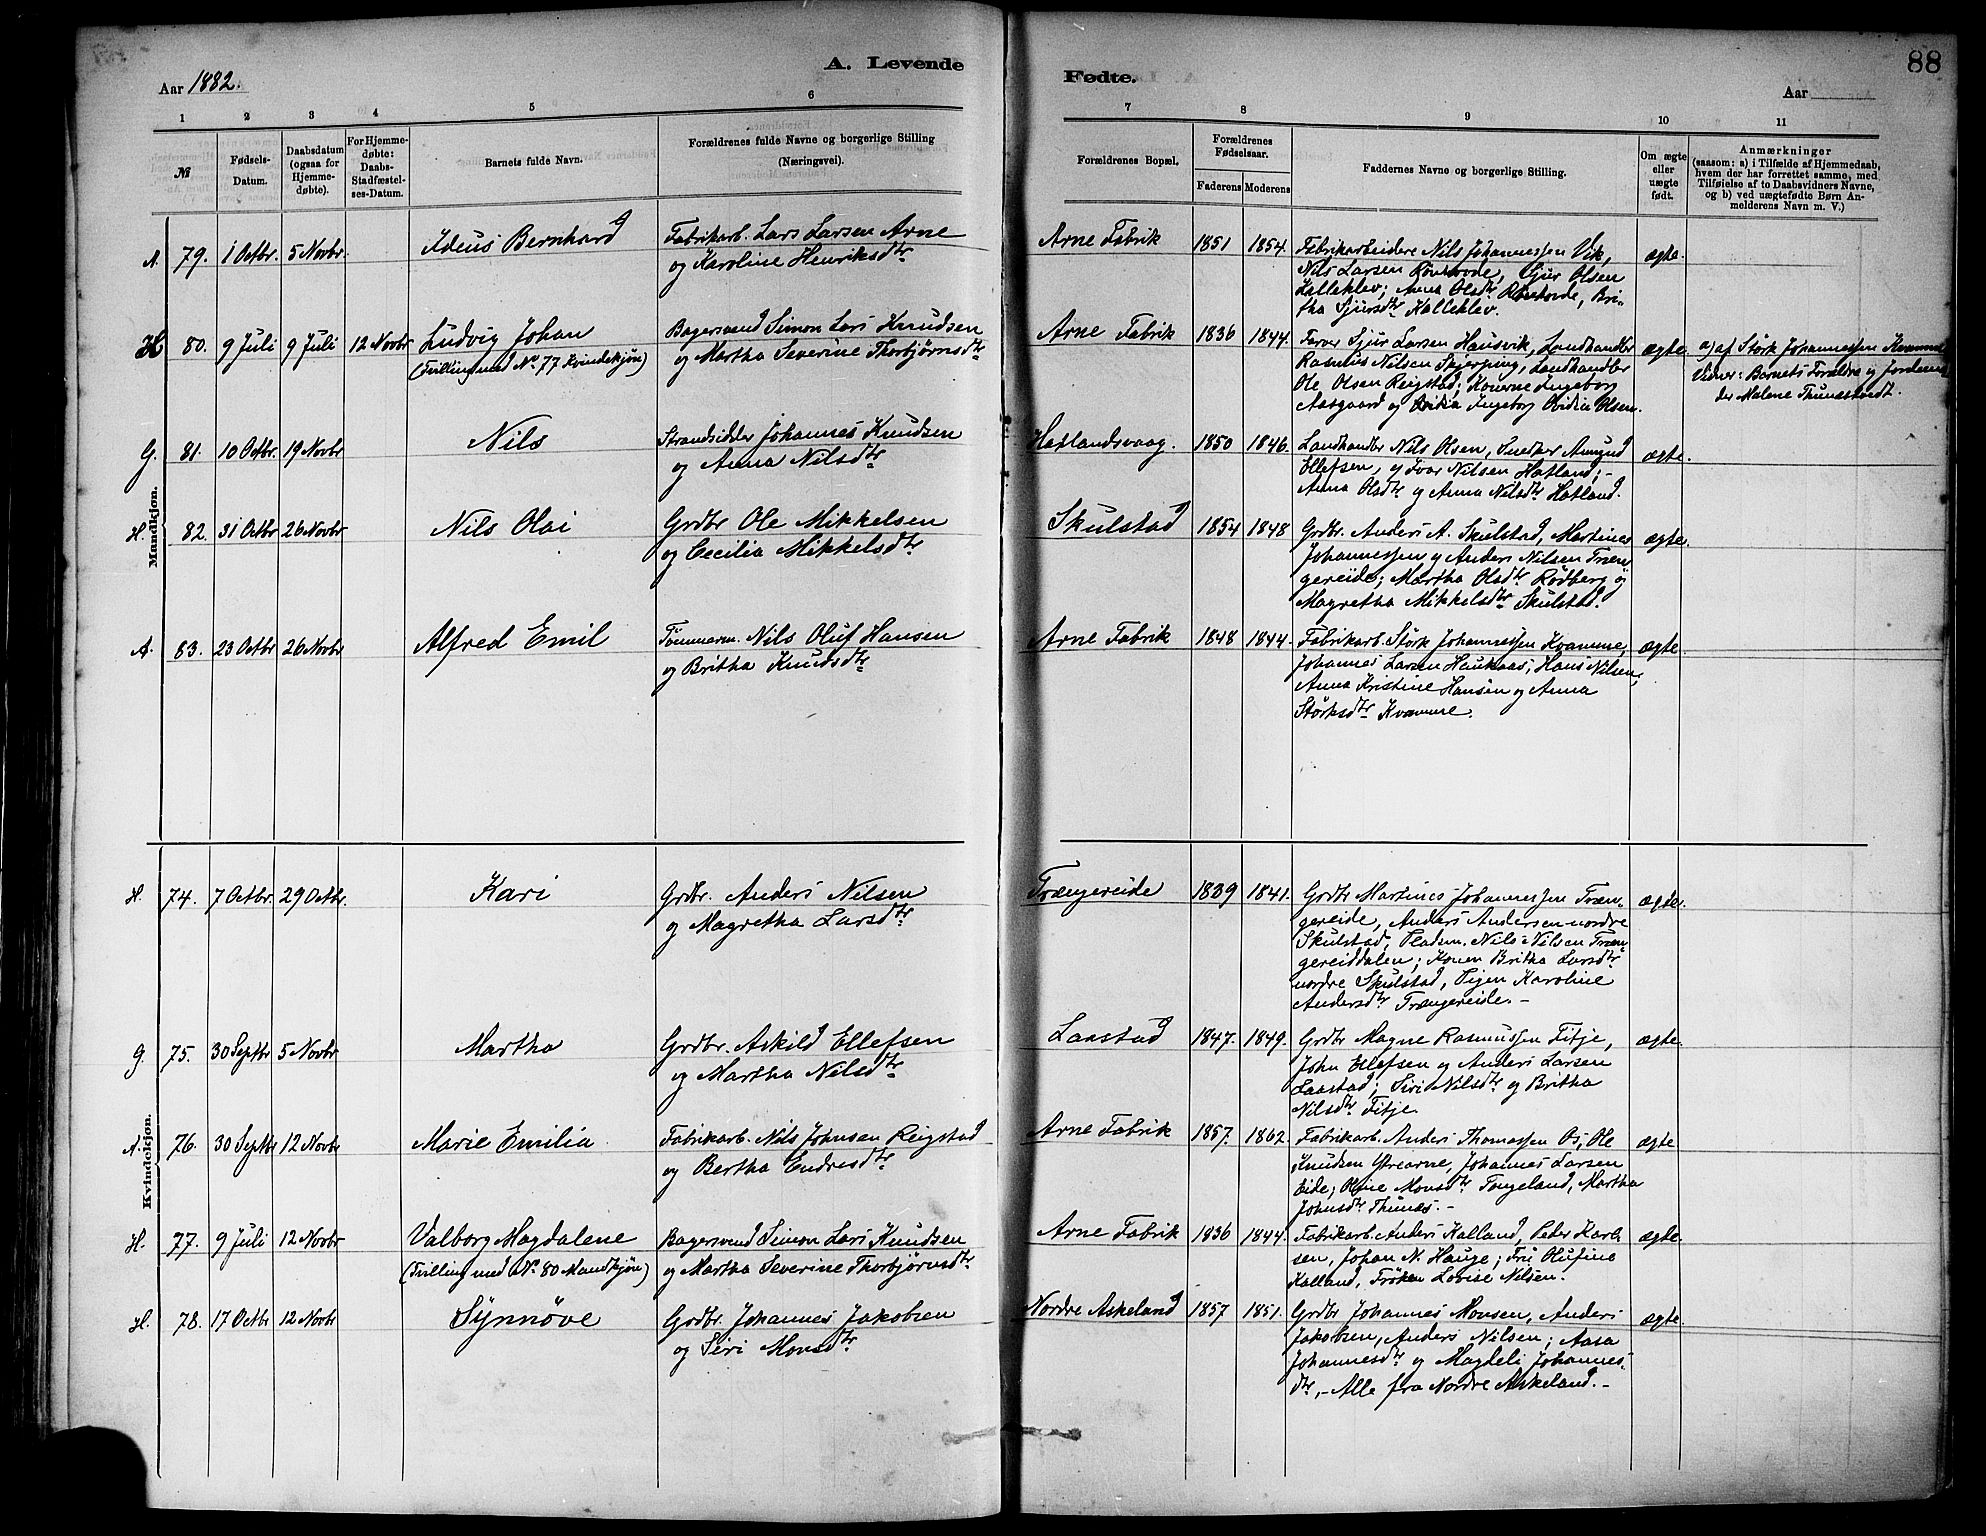 88
A. Levende
Fødte.
Aar 1882.
Aar
1 2 3 4 5 6 7 8 9 10 11
№
Fødsels-
Datum.
Daabsdatum
(ogsaa for
Hjemme-
døbte).
For Hjemme-
døbte:
Daabs-
Stadfæstel-
ses-Datum.
Barnets fulde Navn.
Forældrenes fulde Navne og borgerlige Stilling
(Næringsvei).
Forældrenes Bopæl.
Forældrenes
Fødselsaar.
Faderens Moderens
Faddernes Navne og borgerlige Stilling.
Om ægte
eller
uægte
født.
Anmærkninger
(saasom: a) i Tilfælde af Hjemmedaab,
hvem der har forrettet samme, med
Tilføielse af to Daabsvidners Navne,
og b) ved uægtefødte Børn An-
melderens Navn m. V.)
Mandkjøn.
A. 79. 1 Octbr. 5 Novbr. Ideus Bernhard
Fabrikarb. Lars Larsen Arne
og Karoline Henriksdtr
Arne Fabrik 1851 1854.
Fabrikarbeidere Nils Johannessen Vik,
Nils Larsen, Gjur Olsen
Kalleklev; Anna Olsdtr, Bri-
tha Sjursdtr Kalleklev.
ægte.
H 80. 9 Juli 9 Juli 12 Novbr Ludvig Johan
(Tvilling med No. 77 Kvindekjøn)
Bagersvend Simon Lars Knudsen
og Martha Severine Thorbjørnsdtr
Arne Fabrik 1836 1844.
Farver Sjur Larsen Hausvik, Landhandler
Rasmus Nilsen Skjerping, Landhandler
Ole Olsen Reigstad; Konerne Ingeborg
Aasgaard og Ingeborg Ovidia Olsen.
ægte
a) af Størk Johannessen Kvamme
Vidner: Barnets Forældre og Jordemo-
der Malene Thunestvedt.
G. 81. 10 Octbr. 19 Novbr Nils
Strandsidder Johannes Knudsen
og Anna Nilsdtr
Hatlandsvaag. 1850 1846.
Landhandler Nils Olsen, Snedker Amund
Ellefsen, og Ivar Nilsen Hatland; -
Anna Olsdtr og Anna Nilsdtr Hatland.
ægte.
H. 82. 31 Octbr 26 Novbr Nils Olai
Grdbr Ole Mikkelsen
og Cecilia Mikkelsdtr
Skulstad 1854 1848
Grdbr. Anders A. Skulstad, Martines
Johannessen og Anders Nilsen Træn-
gereide; Martha Olsdtr Rødberg og
Magretha Mikkelsdtr Skulstad.
ægte.
A. 83. 23 Octbr 26 Novbr Alfred Emil
Tømmerm. Nils Oluf Hansen
og Britha Knudsdtr
Arne Fabrik 1848 1844.
Fabrikarb. Størk Johannessen Kvamme,
Johannes Larsen Haukaas, Hans Nilsen,
Anna Kristine Hansen og Anna
Størksdtr Kvamme.
ægte.
Kvindekjøn.
H. 74. 7 Octbr. 29 Octbr. Kari
Grdbr. Anders Nilsen
og Magretha Larsdtr
Trængereide 1839 1841.
Grdbr Martines Johannessen Træn-
gereide, Anders Andersen nordre
Skulstad, Pladsm. Nils Nilsen Træn-
gereiddalen; Konen Britha Larsdtr
nordre Skulstad, Pigen Karoline
Andersdtr Trængereide. -
ægte.
G. 75. 30 Septbr 5 Novbr Martha
Grdbr. Askild Ellefsen
og Martha Nilsdtr
Laastad 1847. 1849.
Grdbr Magne Rasmussen Fitje,
John Ellefsen og Anders Larsen
Laastad; Siri Nilsdtr og Britha
Nilsdtr Fitje.
ægte.
A. 76. 30 Septbr 12 Novbr Marie Emilia
Fabrikarb. Nils Johnsen Reigstad
og Bertha Endresdtr
Arne Fabrik 1857. 1862
Fabrikarb. Anders Thomassen Os, Ole
Knudsen Ytrearne, Johannes Larsen
Eide; Oline Monsdtr Tongeland, Martha
Johnsdtr Thunæs. -
ægte
H. 77. 9 Juli 12 Novbr Valborg Magdalene
(Tvilling med No. 80 Mandkjøn)
Bagersvend Simon Lars Knudsen
og Martha Severine Thorbjørnsdtr
Arne Fabrik 1836 1844.
Fabrikarb. Anders Kalland, Peder Karl-
sen, Johan N. Hauge; Fru Olufine
Kalland, Frøken Lovise Nilsen.
ægte.
H. 78. 17 Octbr 12 Novbr. Synnøve
Grdbr. Johannes Jakobsen
og Siri Monsdtr
Nordre Askeland 1857 1851.
Grdbr Johannes Monsen, Anders
Jakobsen, Anders Nilsen; Aasa
Johannesdtr og Magdeli Johannes-
dtr, - Alle fra Nordre Askeland. -
ægte.